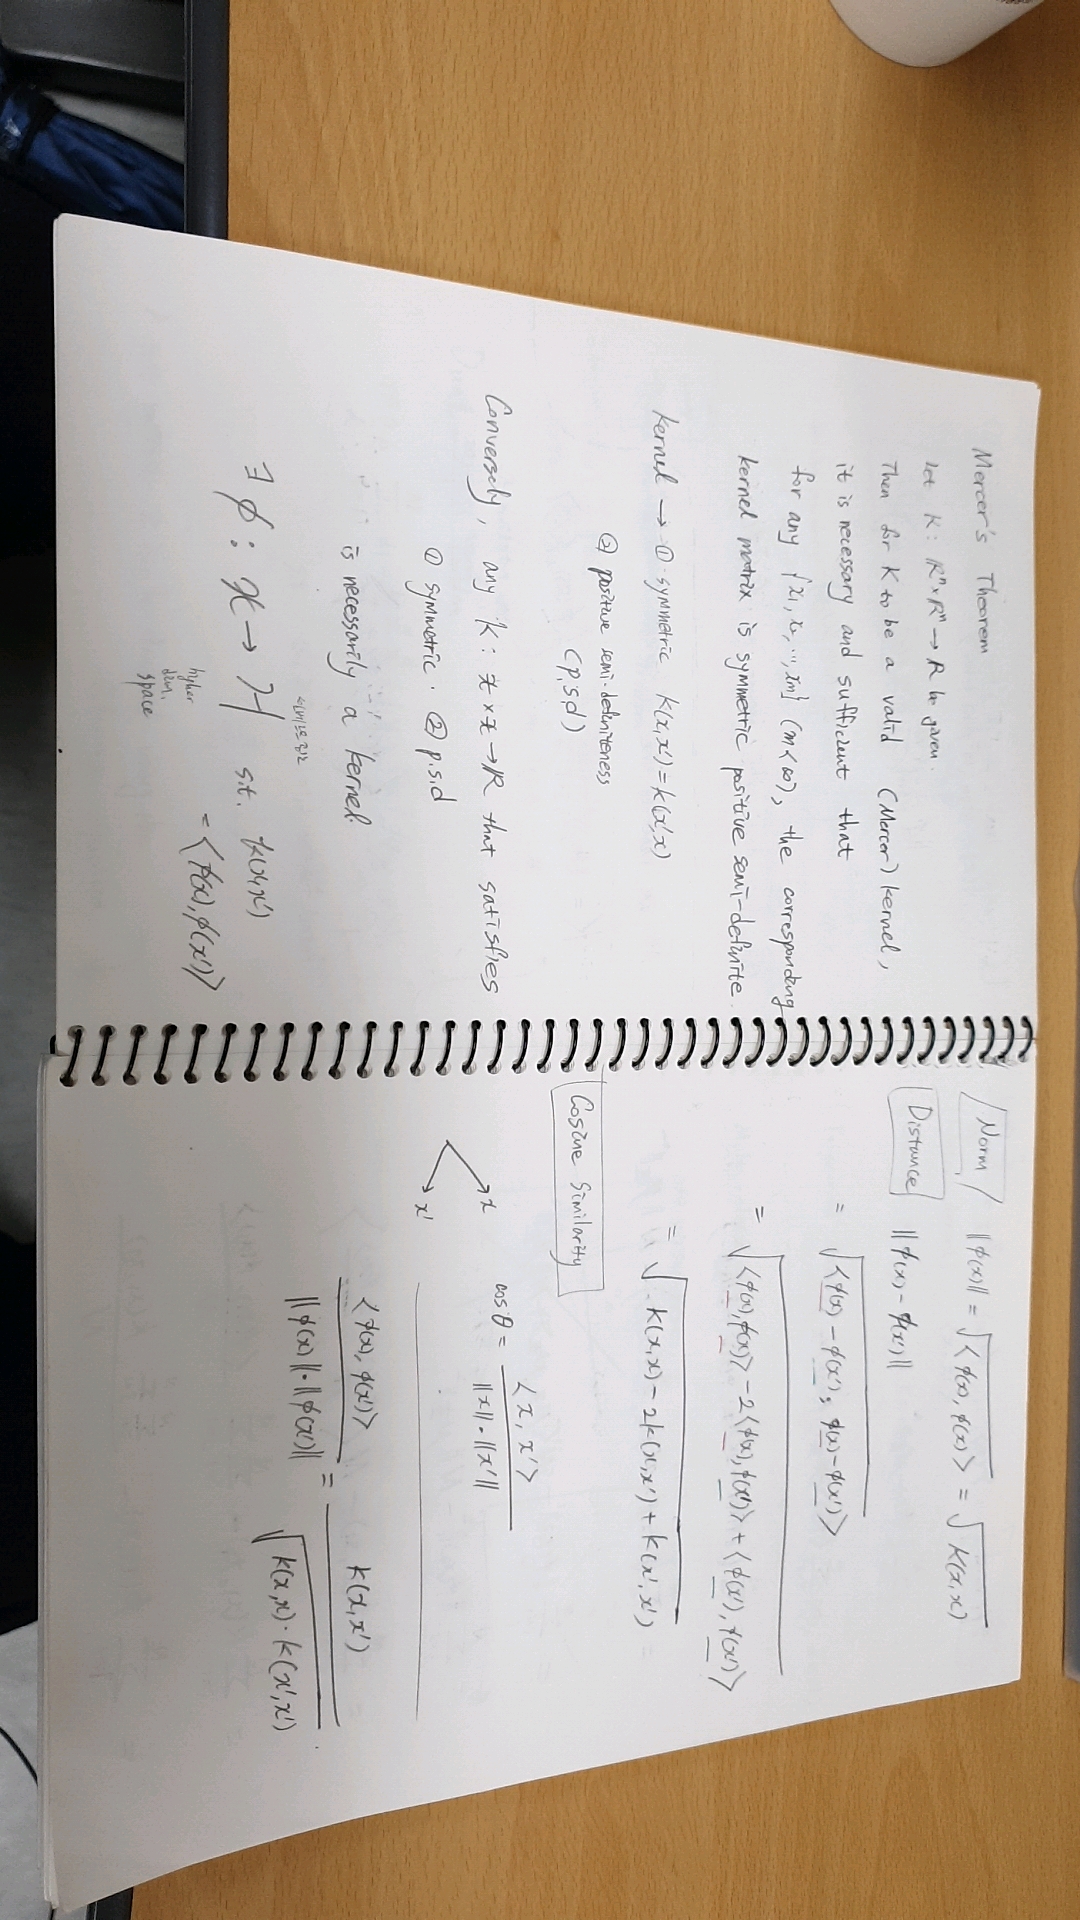 Mercer's Theorem
Let K : ℝⁿ×ℝⁿ → ℝ be given.
Then for K to be a valid (Mercer) kernel,
it is necessary and sufficient that
for any {x₁, x₂, ..., xₘ} (m<∞), the corresponding
kernel matrix is symmetric positive semi-definite.
kernel → ① symmetric k(x,x') = k(x',x)
② positive semi-definiteness
(p.s.d)
Conversely, any k : 𝒳 × 𝒳 → ℝ that satisfies
① symmetric. ② p.s.d
is necessarily a kernel.
∃ φ : 𝒳 → ℋ s.t. k(x,x')
= ⟨φ(x), φ(x')⟩
higher
dim.
space
Norm ‖φ(x)‖ = √⟨φ(x), φ(x)⟩ = √K(x,x)
Distance ‖φ(x) - φ(x')‖
= √⟨φ(x) - φ(x'), φ(x) - φ(x')⟩
= √⟨φ(x), φ(x)⟩ - 2⟨φ(x), φ(x')⟩ + ⟨φ(x'), φ(x')⟩
= √k(x,x) - 2k(x,x') + k(x',x')
Cosine Similarity
x
x'
cos θ = ⟨x, x'⟩ / ‖x‖·‖x'‖
⟨φ(x), φ(x')⟩ / ‖φ(x)‖·‖φ(x')‖ = k(x,x') / √k(x,x)·k(x',x')